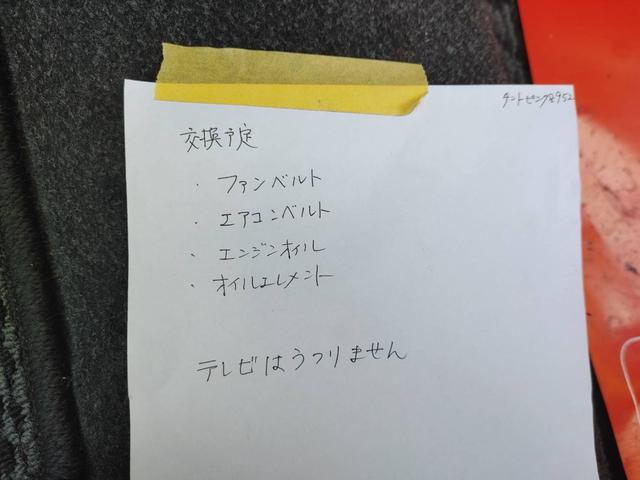 タントピンク8952
交換予定
・ファンベルト
・エアコンベルト
・エンジンオイル
・オイルエレメント
テレビはうつりません